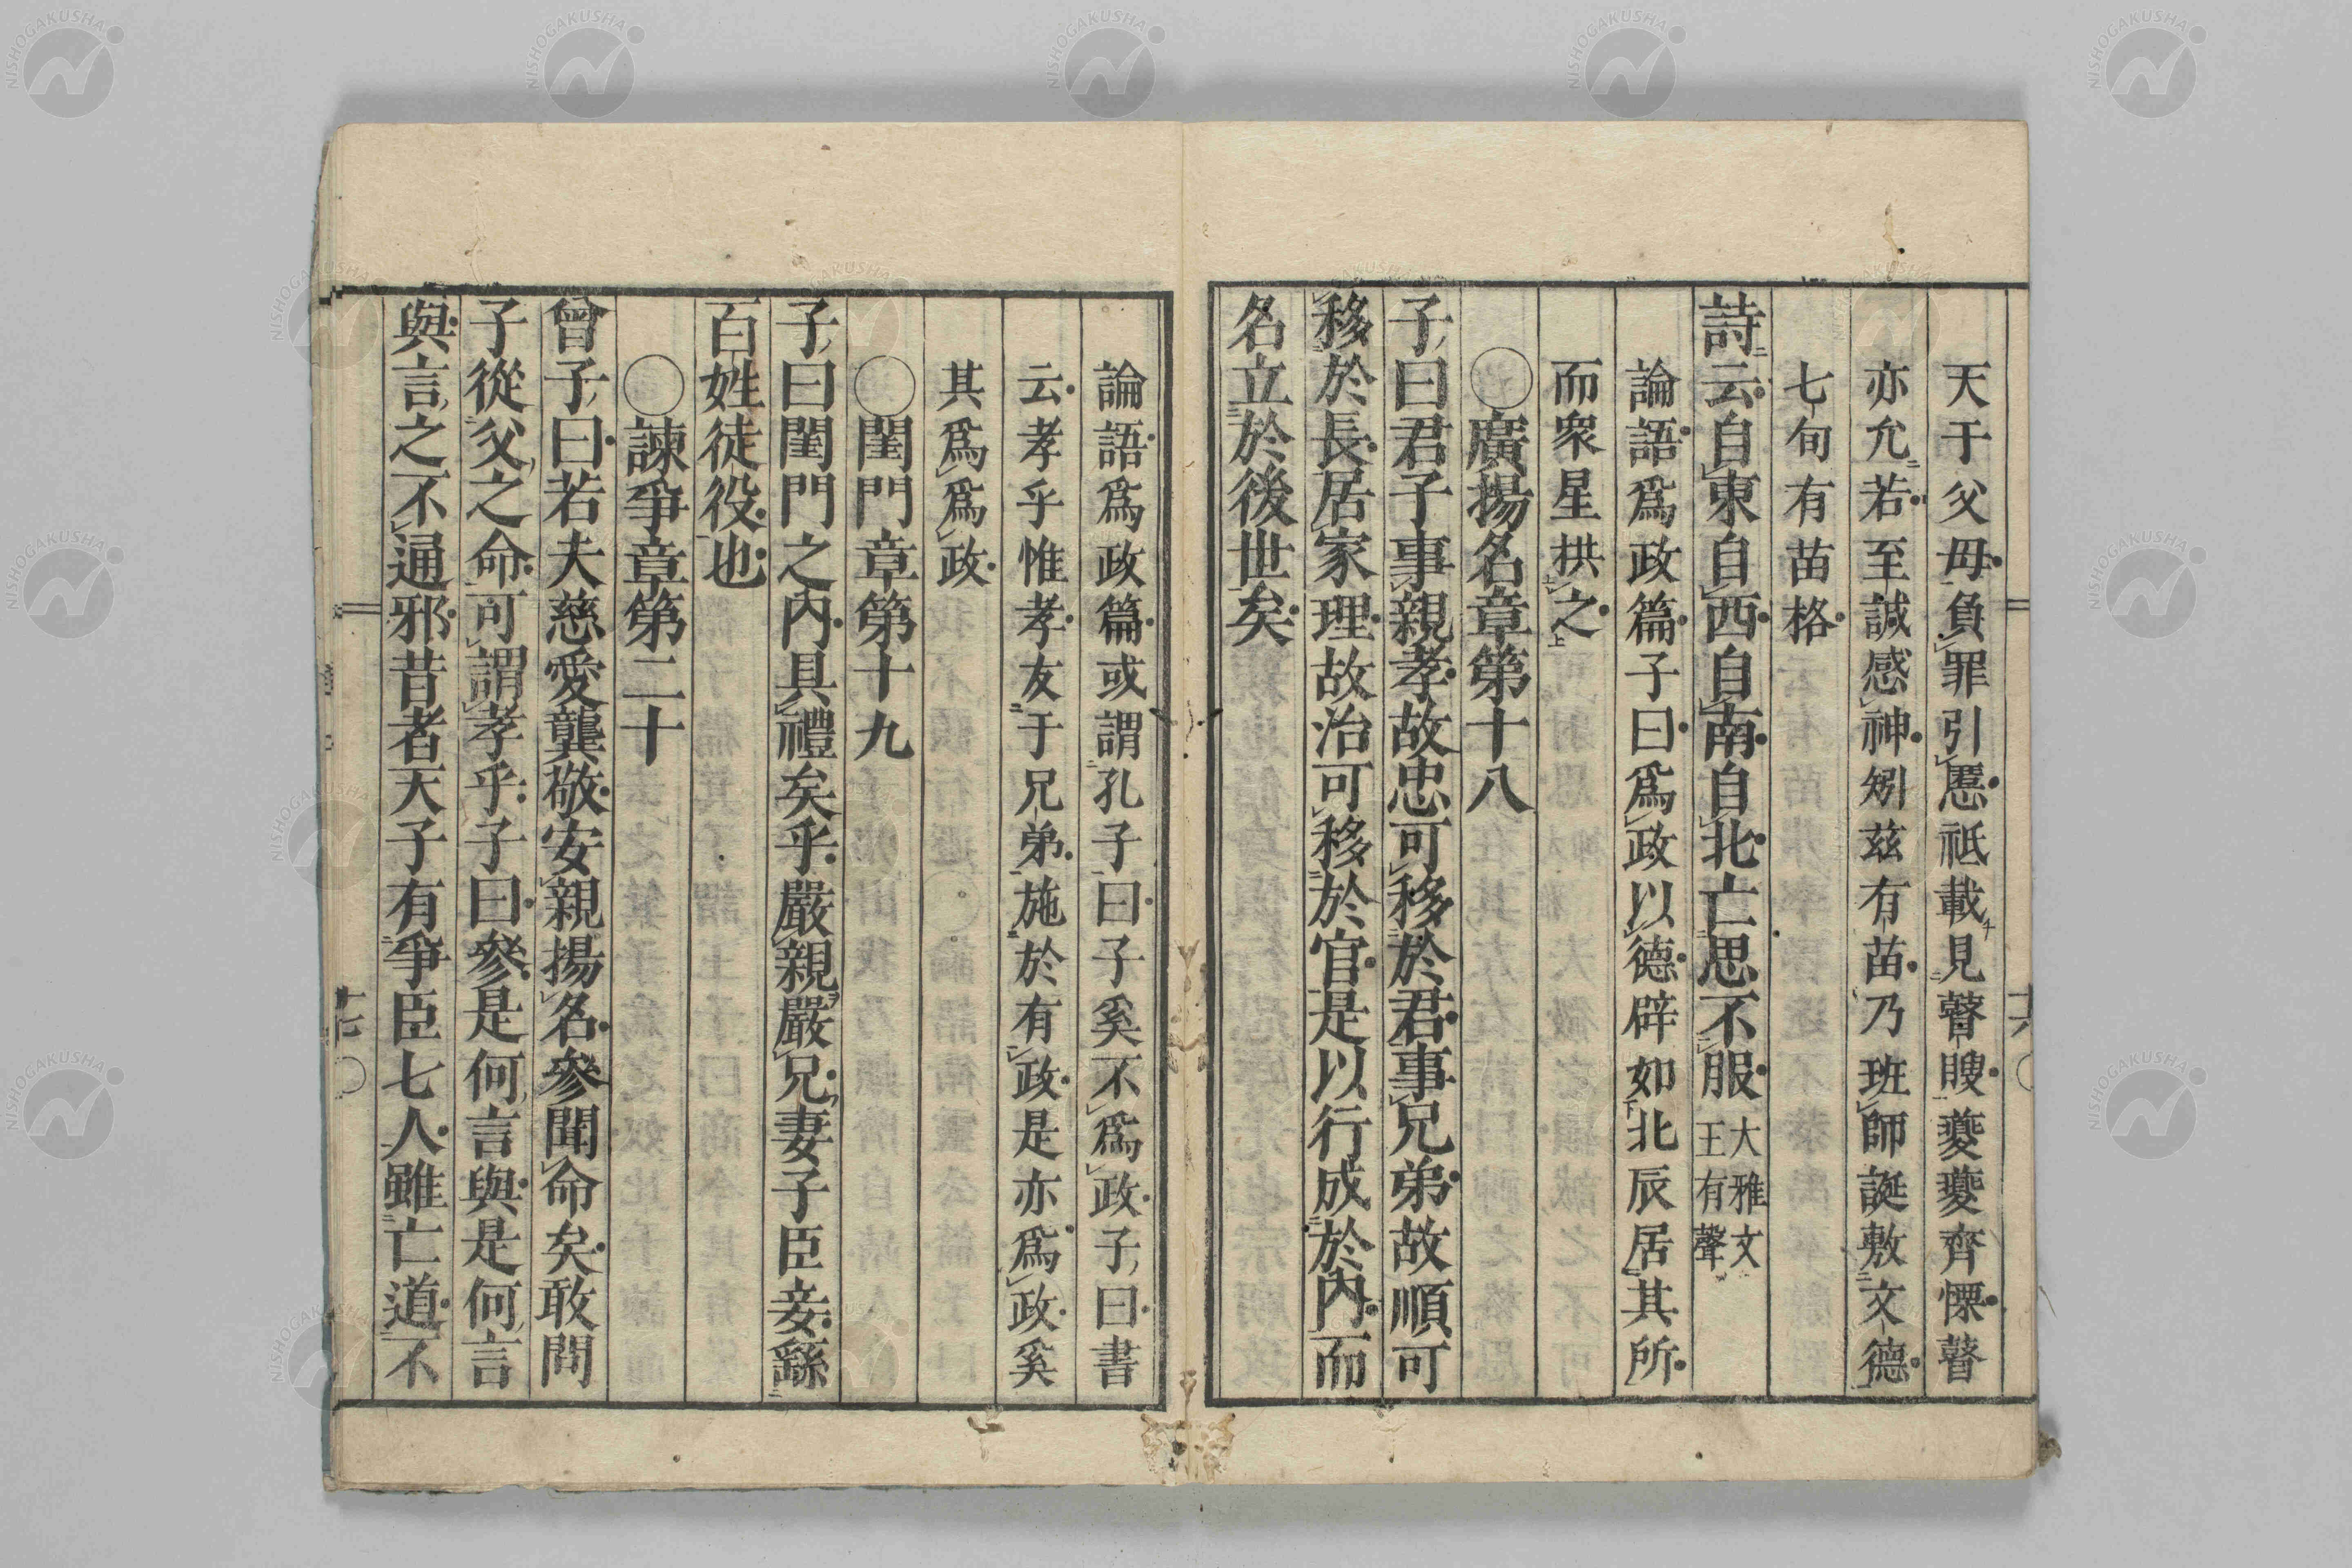 天于父母負罪引慝祗載見瞽瞍夔夔齊慄瞽
亦允若至諴感神矧茲有苗乃班師誕敷文德
七旬有苗格
詩云自東自西自南自北亡思不服大雅文王有聲
論語爲政篇子曰爲政以德辟如北辰居其所
而衆星拱之
○廣揚名章第十八
子曰君子事親孝故忠可移於君事兄弟故順可
移於長居家理故治可移於官是以行成於內而
名立於後世矣
十六
論語爲政篇或謂孔子曰子奚不爲政子曰書
云孝乎惟孝友于兄弟施於有政是亦爲政奚
其爲爲政
○閨門章第十九
子曰閨門之內具禮矣乎嚴親嚴兄妻子臣妾繇
百姓徒役也
○諫爭章第二十
曾子曰若夫慈愛龔敬安親揚名參聞命矣敢問
子從父之命可謂孝乎子曰參是何言與是何言
與言之不通邪昔者天子有爭臣七人雖亡道不
十七
NISHOGAKUSHA